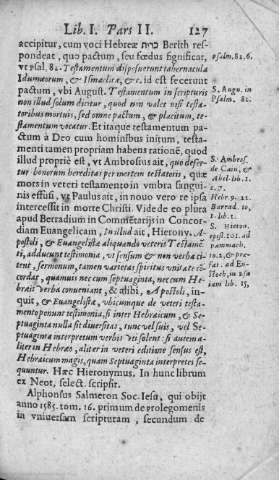 Lib. I. Pars II. 127
accipitur, cum voci Hebreæ ברית Berith res-
pondeat, quo pactum, seu fœdus significat, psalm. 82. 6.
vt psal. 82. Testamentum disposuerunt tabernacula
Idumæorum, & Ismaelitæ, &c. id est fecerunt
pactum, vbi August. Testamentum in scripturis S. Aug. in
non illud solum dicitur, quod non valet nisi testa- Psalm. 82.
toribus mortuis, sed omne pactum, & placitum, te-
stamentum vocatur. Et itaque testamentum pa-
ctum à Deo cum hominibus initum, testa-
menti tamen propriam habens rationē, quod
illud propriè est, vt Ambrosius ait, quo defer- S. Ambros.
tur bonorum hereditas per mortem testatoris, quæ de Cain, &
mors in veteri testamento in vmbra sangui- Abel lib. 1.
nis effusi, vt Paulus ait, in nouo vero re ipsa Hebr. 9. 21.
intercessit in morte Christi. Vide de eo plura
apud Barradium in Commētarijs in Concor- lib. 1.
diam Euangelicam, In illud ait, Hierony. A- S. Hieron.
postoli, & Euangelistæ aliquando veteris Testamē- epist. 101. ad
ti, adducunt testimonia, vt sensum & non verba ci- pammach.
tent, sermonum, tamen varietas spiritus vnitate cō-
cordat, quamuis nec cum Septuaginta, nec cum He-
braei verba conueniant, & alibi, Apostoli, in-
quit, & Euangelistæ, vbicumque de veteri testa- iam lib. 15,
mento ponunt testimonia, si inter Hebraicum, &
Septuaginta nulla sit diuersitas, tunc vel suis, vel Se-
ptuaginta interpretum verbis vti solent: si autem a-
liter in Hebræo, aliter in veteri editione sensus est,
Hebraicum magis, quam Septuaginta interpretes se-
quuntur. Hæc Hieronymus. In hunc librum
ex Neot, select. scripsit.
Alphonsus Salmeron Soc. Iesu, qui obijt
anno 1585. tom. 16. primum de prolegomenis
in vniuersam scripturam, secundum de